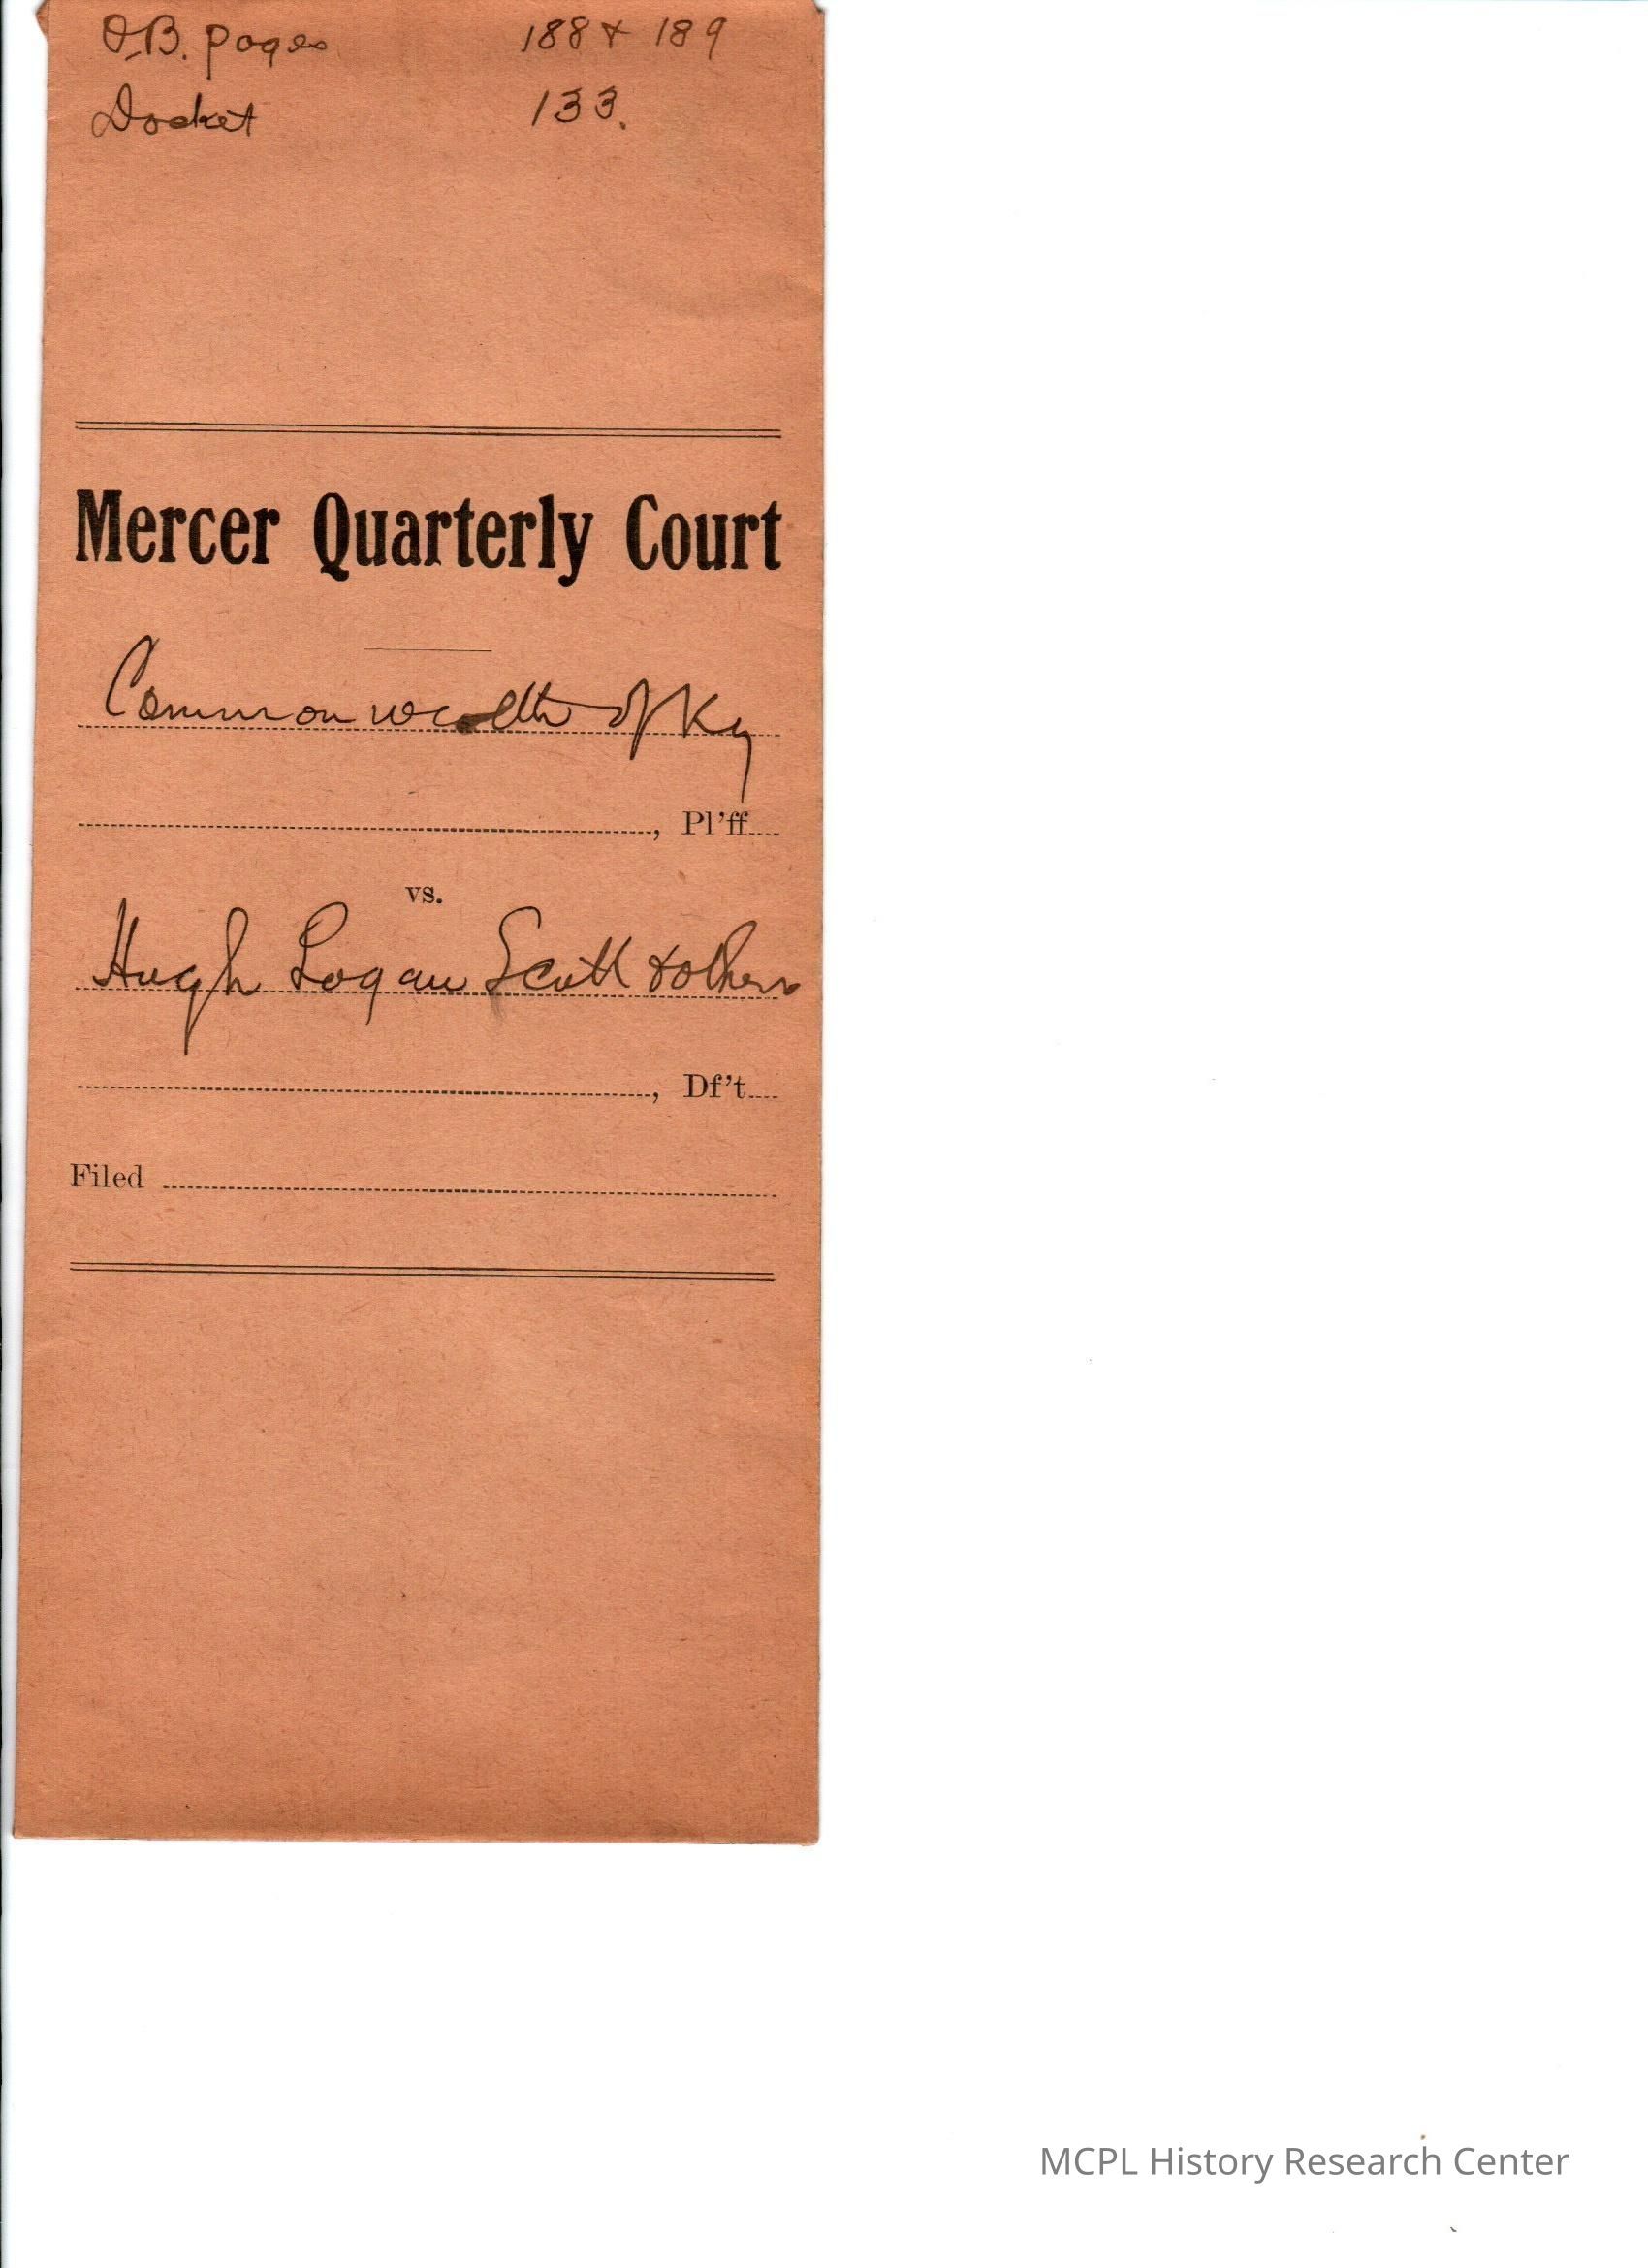 O.B. pages 188 & 189
Docket 133.
Mercer Quarterly Court
Commonwealth of Ky
, Pl'ff
vs.
Hugh Logan Scott & others
, Df't
Filed
MCPL History Research Center